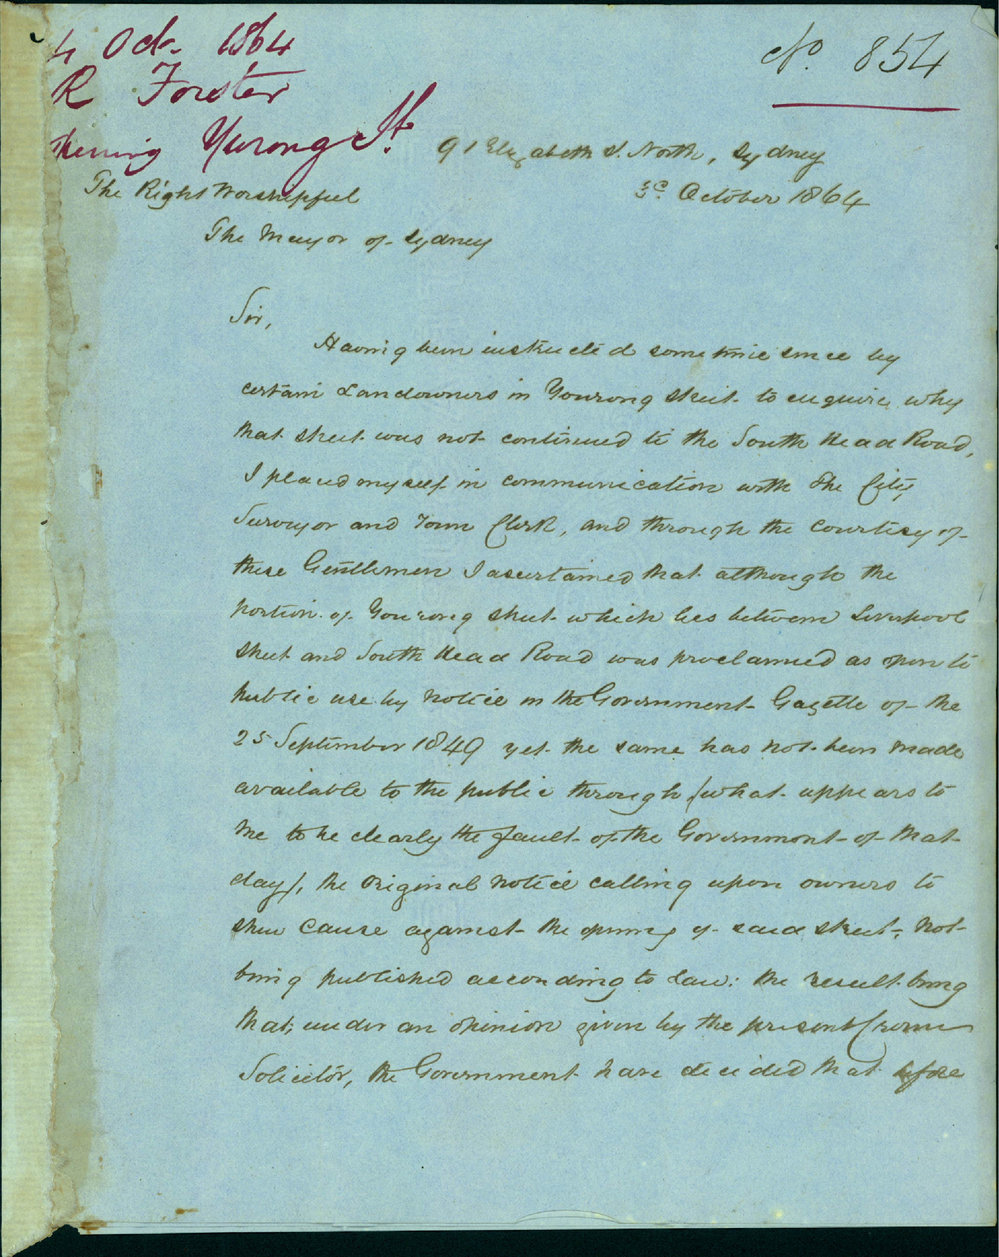 4 Oct. 1864
R Forster
Opening Yurong St.
No. 854
91 Elizabeth St. North, Sydney
3d. October 1864
The Right Worshipful
The Mayor of Sydney
Sir,
Having been instructed some time since by
certain Landowners in Yourong street to enquire why
that street was not continued to the South Head Road,
I placed myself in communication with the City
Surveyor and Town Clerk, and through the courtesy of
these Gentlemen I ascertained that although the
portion of Yourong street which lies between Liverpool
street and South Head Road was proclaimed as open to
public use by notice in the Government Gazette of the
25 September 1849 yet the same has not been made
available to the public through (what appears to
me to be clearly the fault of the Government of that
day), the original notice calling upon owners to
shew cause against the opening of said street, not
being published according to Law: the result being
that, under an opinion given by the present Crown
Solicitor, the Government have decided that before